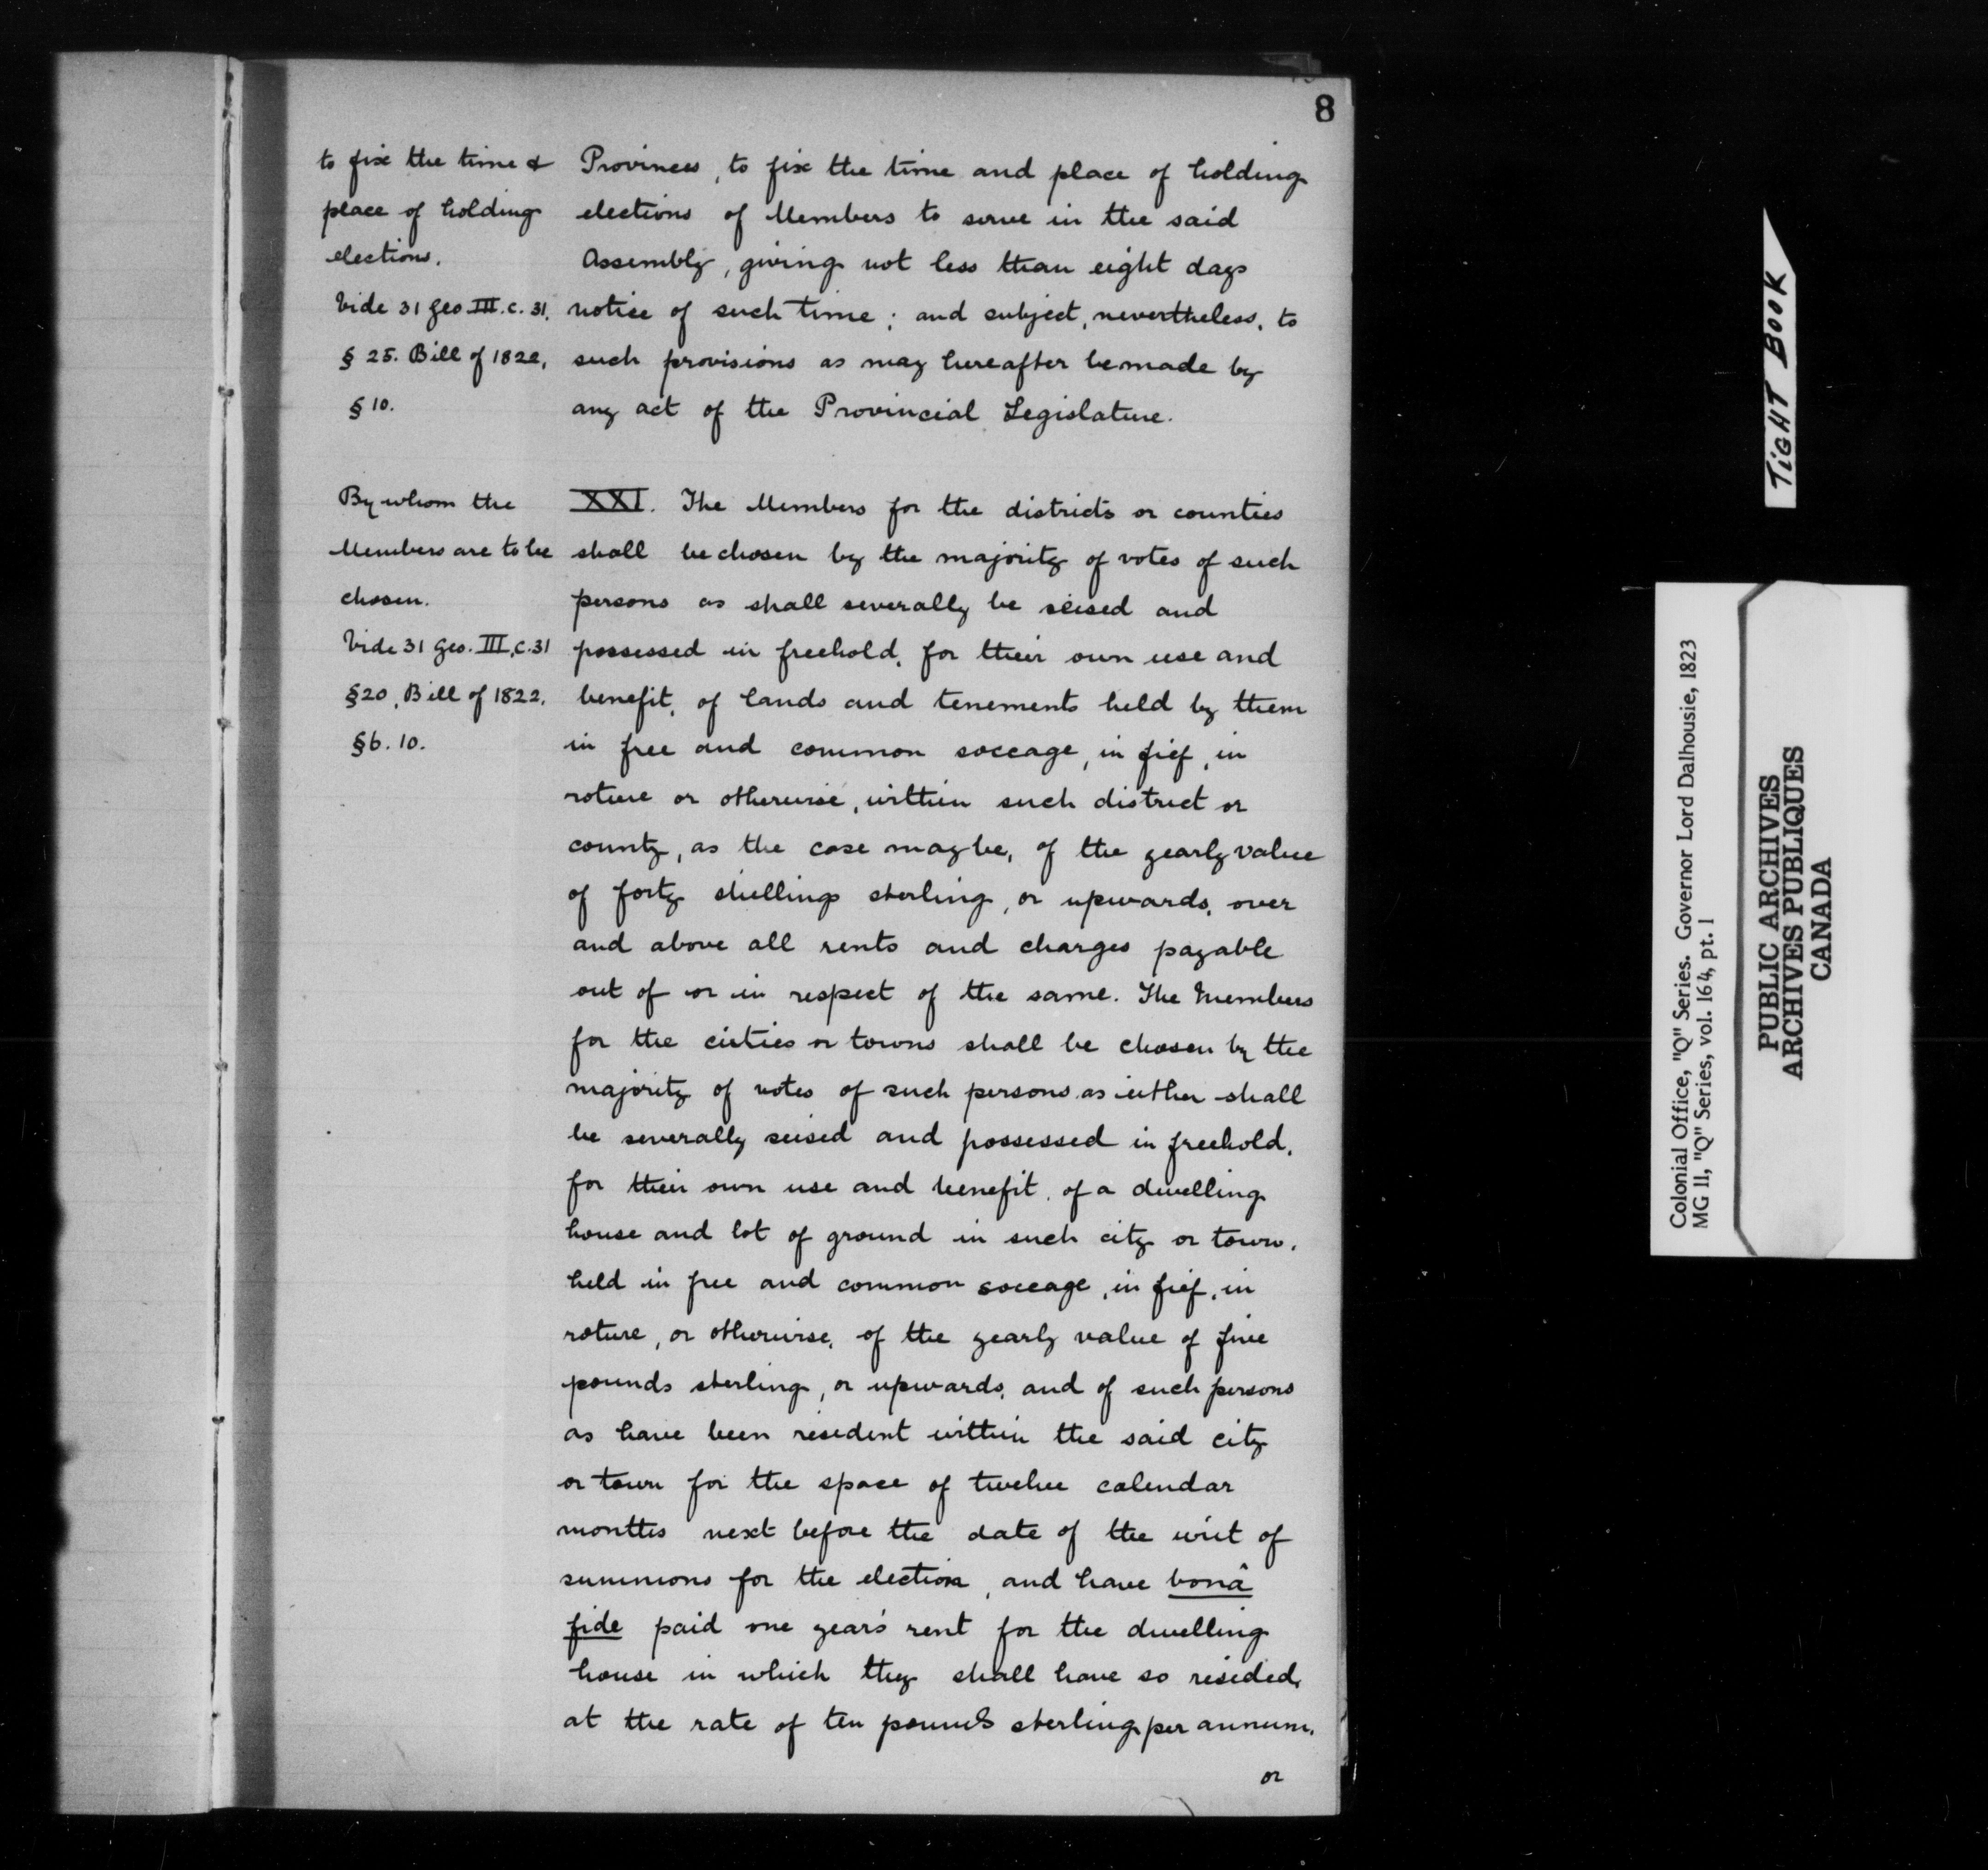 8
to fix the time &
place of holding
elections.
Vide 31 Geo. III. c. 31.
§ 25. Bill of 1822,
§ 10.
Provinces, to fix the time and place of holding
elections of Members to serve in the said
Assembly, giving not less than eight days
notice of such time; and subject, nevertheless, to
such provisions as may hereafter be made by
any act of the Provincial Legislature.
By whom the
Members are to be
chosen.
Vide 31 Geo. III, c. 31
§20, Bill of 1822.
§6. 10.
XXI. The Members for the districts or counties
shall be chosen by the majority of votes of such
persons as shall severally be seised and
possessed in freehold, for their own use and
benefit, of lands and tenements held by them
in free and common soccage, in fief, in
roture or otherwise, within such district or
county, as the case may be, of the yearly value
of forty shillings sterling, or upwards, over
and above all rents and charges payable
out of or in respect of the same. The Members
for the cities or towns shall be chosen by the
majority of votes of such persons as either shall
be severally seised and possessed in freehold,
for their own use and benefit, of a dwelling
house and lot of ground in such city or town,
held in free and common soccage, in fief, in
roture, or otherwise, of the yearly value of five
pounds sterling, or upwards, and of such persons
as have been resident within the said city
or town for the space of twelve calendar
months next before the date of the writ of
summons for the election, and have bonâ
fide paid one year's rent for the dwelling
house in which they shall have so resided,
at the rate of ten pounds sterling per annum,
or
TIGHT BOOK
Colonial Office, "Q" Series. Governor Lord Dalhousie, 1823
MG 11, "Q" Series, vol. 164, pt. 1
PUBLIC ARCHIVES
ARCHIVES PUBLIQUES
CANADA